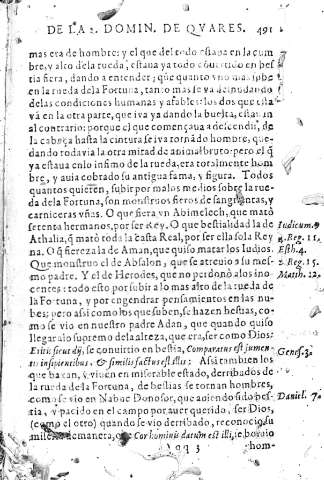 DE LA 2. DOMIN. DE QVARES. 491
mas era de hombre: y el que del todo estaua en la cum
bre, y alto de la rueda, estaua ya todo cōuertido en bes
tia fiera, dando a entender, que quanto vno mas sube
en la rueda de la Fortuna, tanto mas se va desnudando
de las condiciones humanas y afables: los dos que esta
uā en la otra parte, que iva ya dando la buelta, estauan
al contrario: porque el que començaua a descendir, de
la cabeça hasta la cintura se iva tornādo hombre, que-
dando todavia la otra mitad de animal bruto: pero el q̄
ya estaua enlo infimo de la rueda, era totalmente hom
bre, y auia cobrado su antigua fama, y figura. Todos
quantos quieren, subir por malos medios sobre la rue-
da de la Fortuna, son monstruos fieros de sangrientas, y
carniceras vñas. O que fiera vn Abimelech, que matò
setenta hermanos, por ser Rey. O que bestialidad la de
Athalia, q̄ matò toda la casta Real, por ser ella sola Rey
na. O q̄ fiereza la de Aman, que quiso matar los Iudios.
Que monstruo el de Absalon, que se atreuio a su mes-
mo padre. Y el de Herodes, que no perdonò a los ino-
centes: todo esto por subir a lo mas alto de la rueda de
la Fortuna, y por engendrar pensamientos en las nu-
bes: pero assi como los que suben, se hazen bestias, co-
mo se vio en nuestro padre Adan, que quando quiso
llegar a lo supremo de la alteza, que era, ser como Dios:
Eritis sicut dij, se conuirtio en bestia, Comparatus est iumen-
tis insipientibus. & similis factus est illis: Assi tambien los
que baxan, y viuen en miserable estado, derribados de
la rueda de la Fortuna, de bestias se tornan hombres,
como se vio en Nabuc Donosor, que auiendo sido bes-
tia, y pacido en el campo por auer querido, ser Dios,
(como el otro) quando se vio derribado, reconocio su
miseria de manera, que Cor hominis datum est illi, le boluio
Qqq 3 hom-
Iudicum. 9
4. Reg. 11.
Esth. 4.
2. Reg. 15.
Matth. 12.
Genes. 3.
Daniel. 7.